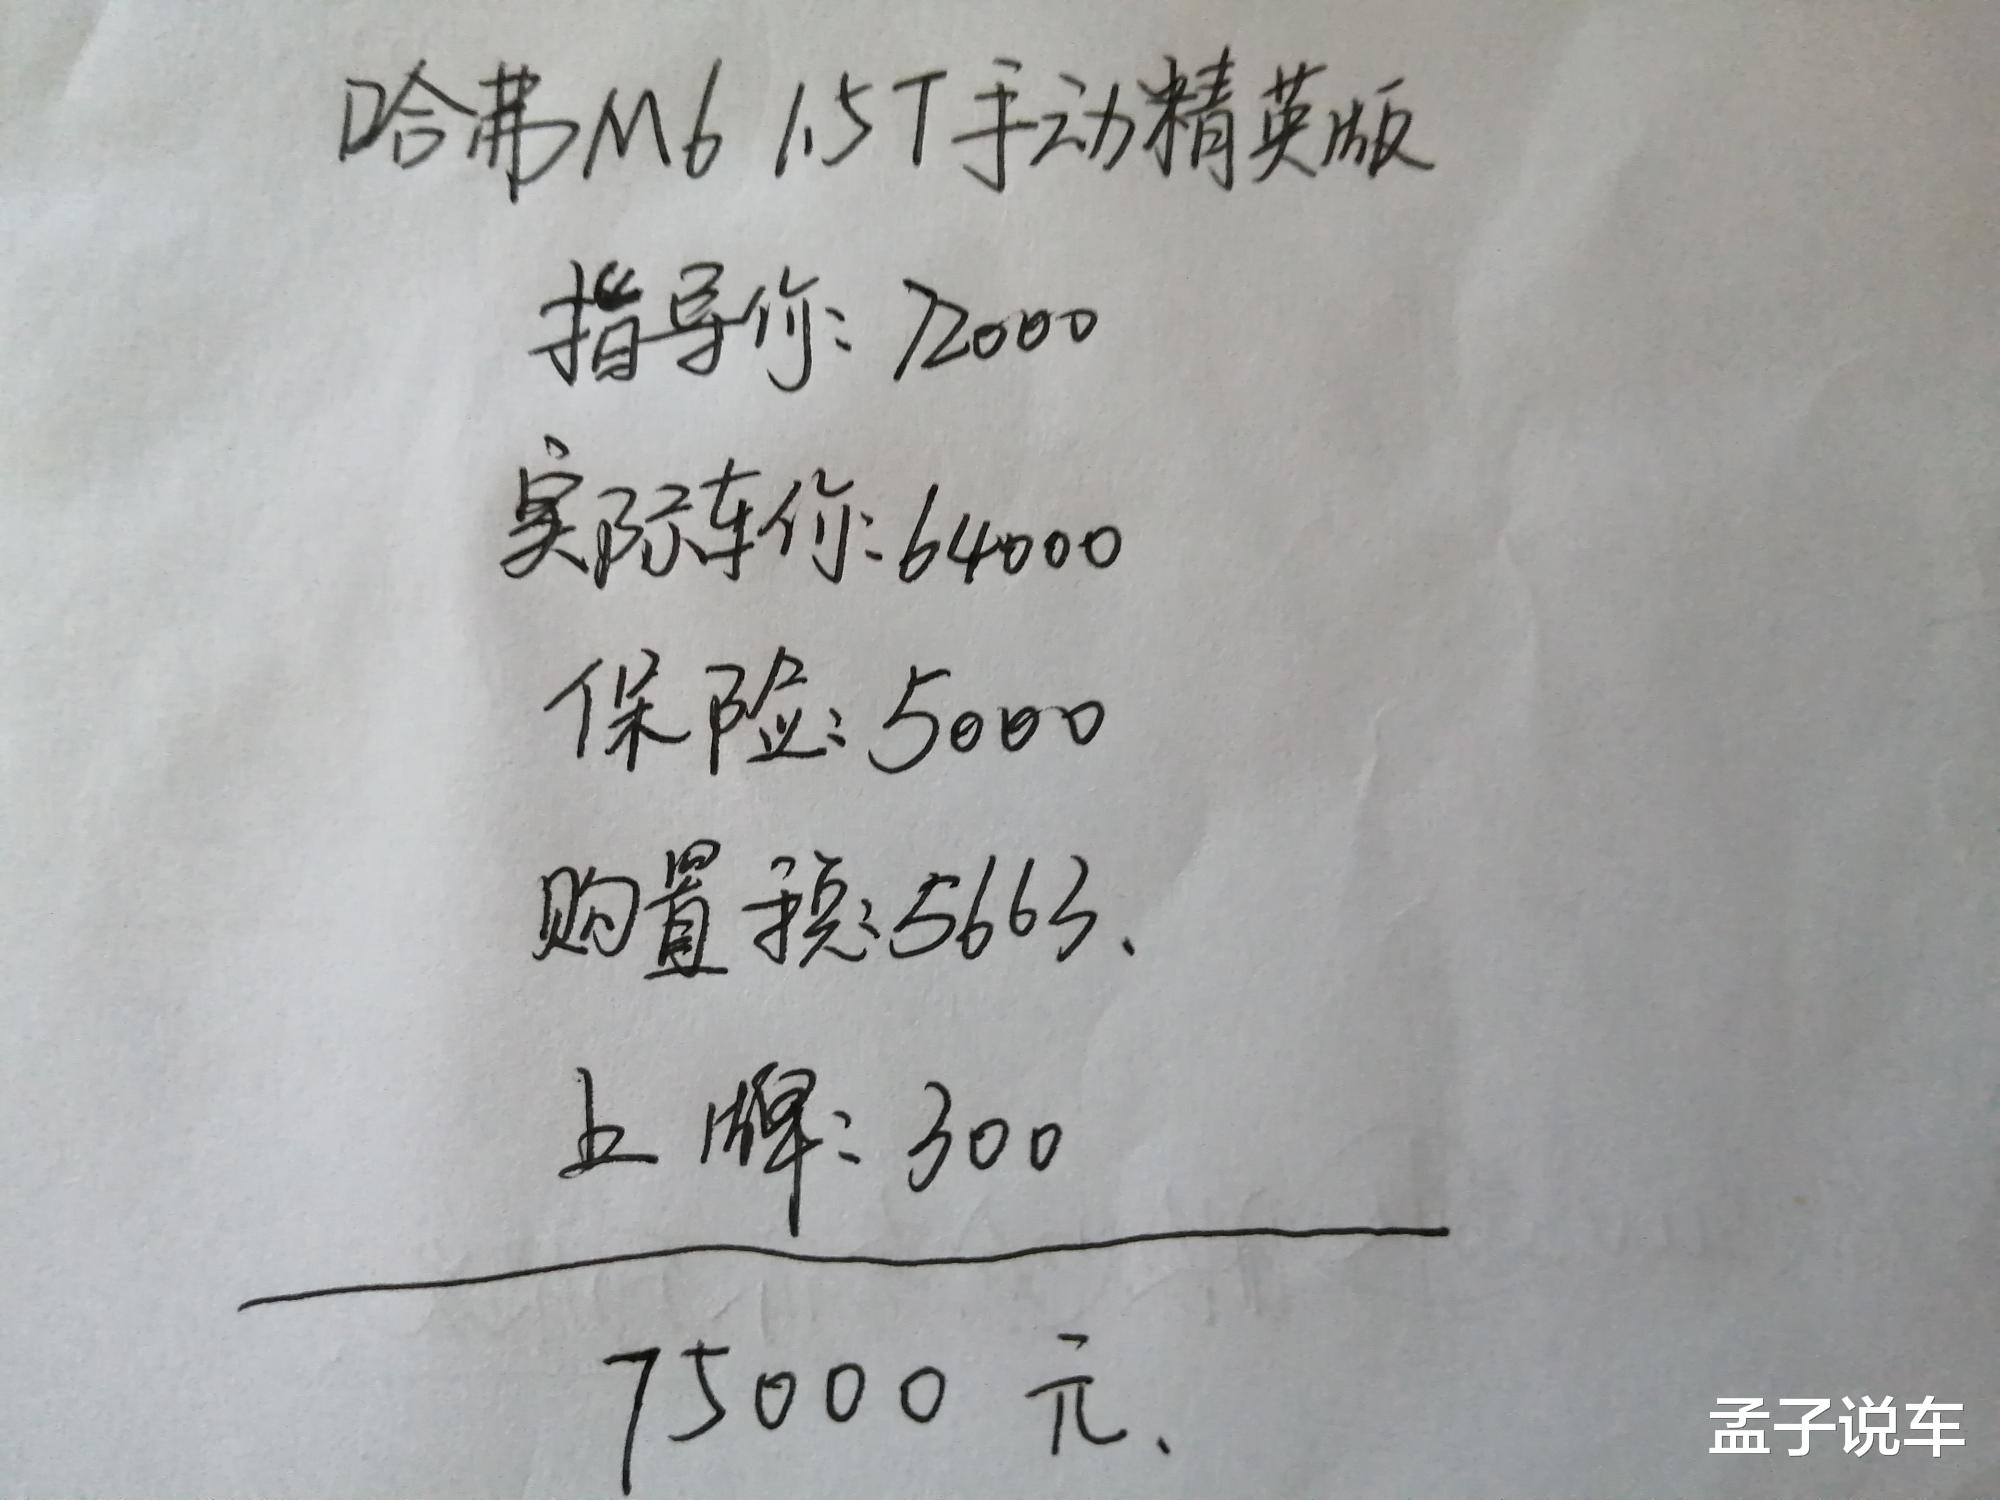 哈弗M6 1.5T手动精英版
指导价:72000
实际车价:64000
保险:5000
购置税:5663.
上牌:300
75000元.
孟子说车